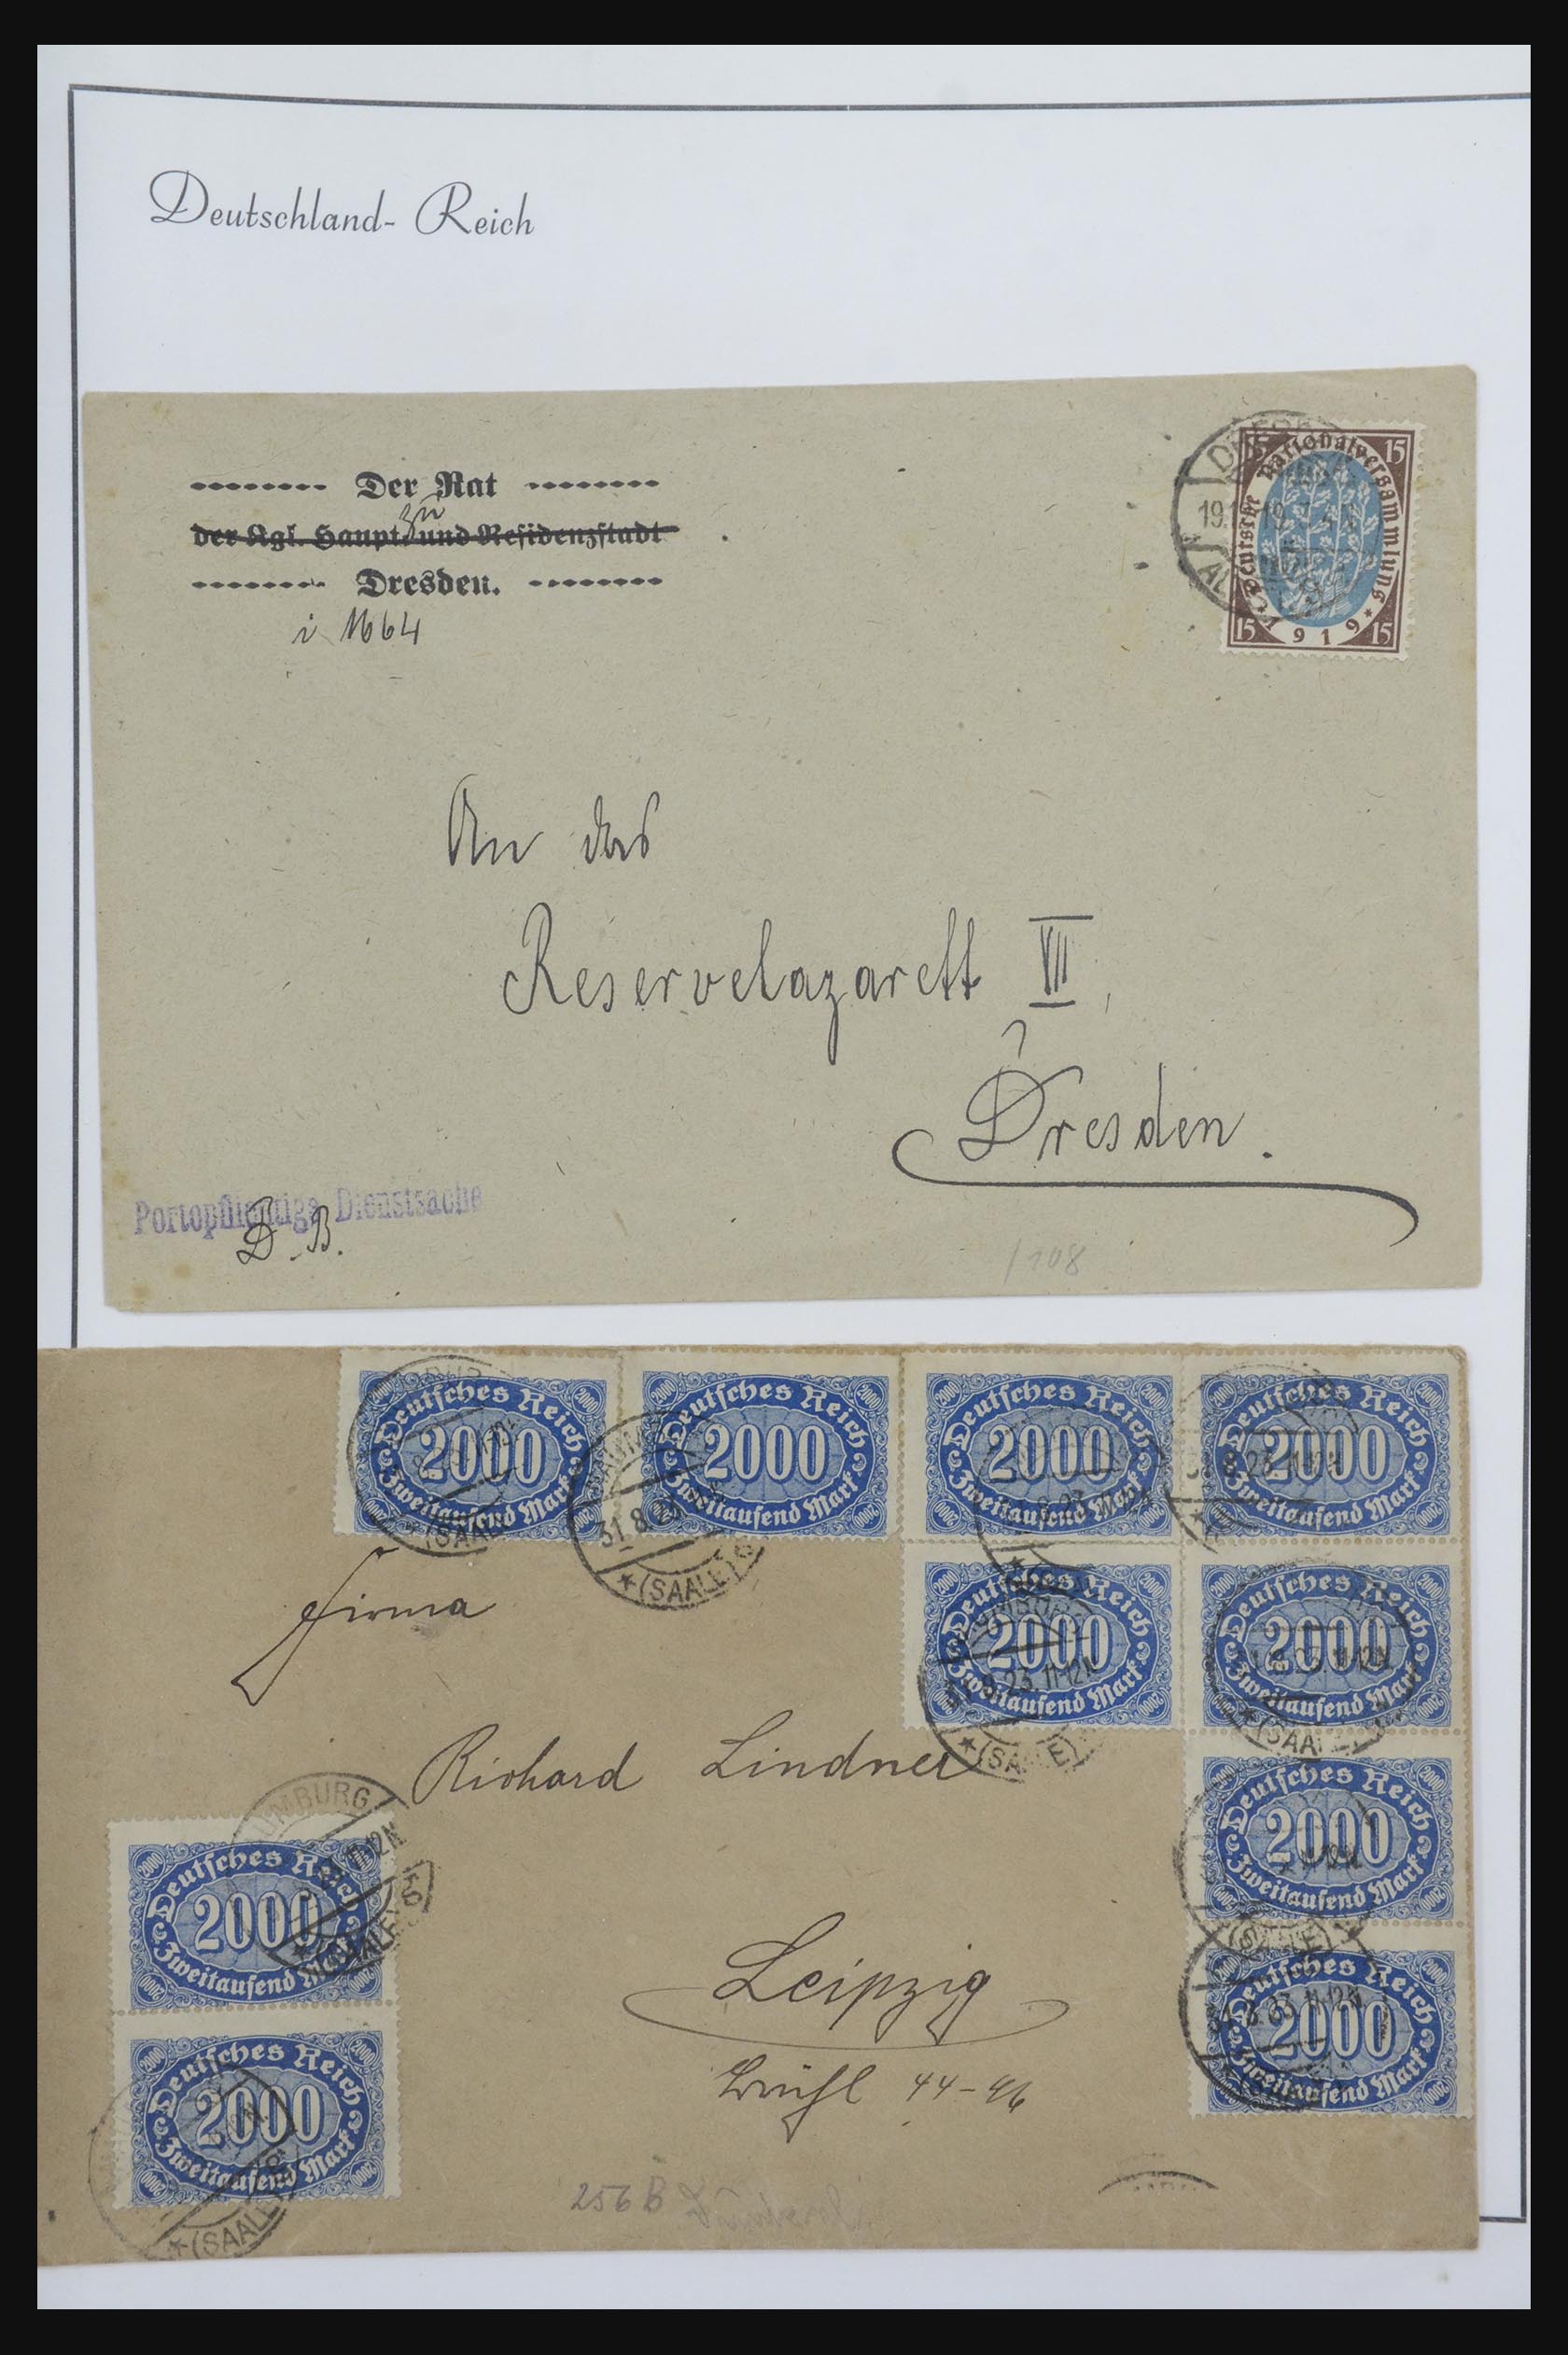 Deutschland- Reich
Der Rat
der Kgl. Haupt- und Residenzstadt
zu
Dresden.
i 1664
15 15
Deutsche Nationalversammlung
1919
15 15
An das
Reservelazarett VII,
Dresden.
Portopflichtige Dienstsache
D. B.
/108
Deutsches Reich
2000
Zweitausend Mark
Deutsches Reich
2000
Zweitausend Mark
Deutsches Reich
2000
Zweitausend Mark
Deutsches Reich
2000
Zweitausend Mark
31.8.
(SAALE)
Firma
Deutsches Reich
2000
Zweitausend Mark
Deutsches Reich
2000
Zweitausend Mark
8.23.11-12N
(SAALE)
Richard Lindner
Deutsches Reich
2000
Zweitausend Mark
NAUMBURG
(SAALE)
Deutsches Reich
2000
Zweitausend Mark
Leipzig
Deutsches Reich
2000
Zweitausend Mark
Deutsches Reich
2000
Zweitausend Mark
Brühl 44-46
(SAALE)
256 B